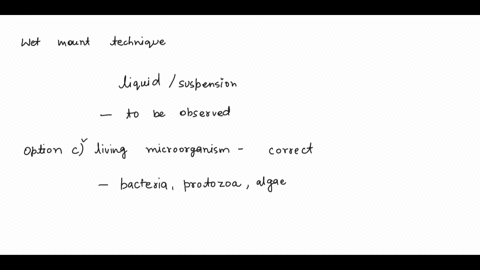 Wet mount technique
liquid / suspension
- to be observed
option c)✓ living microorganism - correct
- bacteria, protozoa, algae